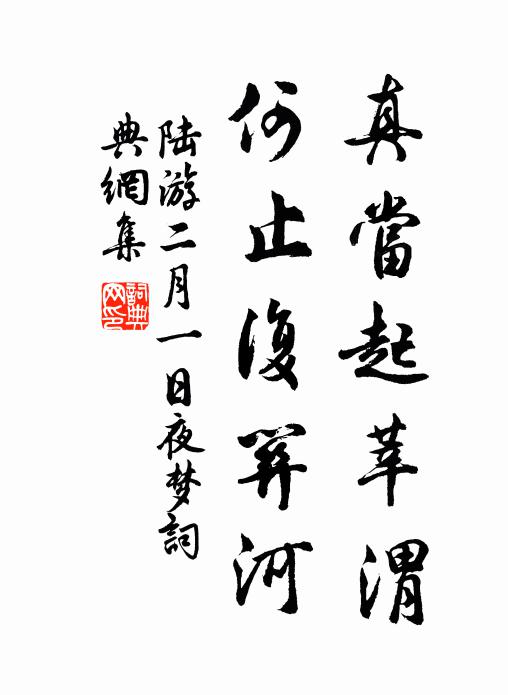 真當起莘渭
何止復關河
陆游二月一日夜梦詞
典網集
詞典
网印